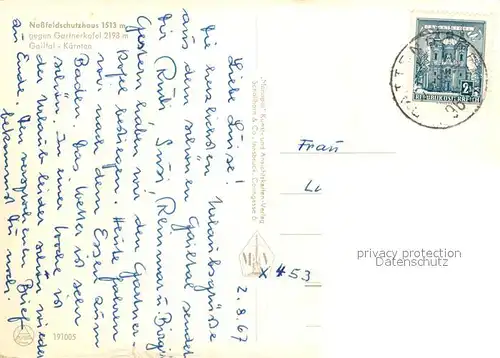 Naßfeldschutzhaus 1513 m
gegen Gartnerkofel 2198 m
Gailtal - Kärnten
2.8.67
Liebe Luise!
Die herzlichsten Urlaubsgrüße
aus dem schönen Gailtal sendet
Dir Ruth, Susi, Reinmar u. Birgit
Gestern haben wir den Gartner-
kofel bestiegen. Heute fahren
wir nach dem Essen zum
Baden. Das Wetter ist sehr
schön. In einer Woche ist
der Urlaub leider schon wieder
zu Ende. Den versprochenen Brief
bekommst Du noch.
191005
Monopol Kunst- und Ansichtskarten-Verlag
Schöllhorn & Co., Innsbruck,
REPUBLIK ÖSTERREICH
Frau
Lu
x 453
privacy protection
Datenschutz